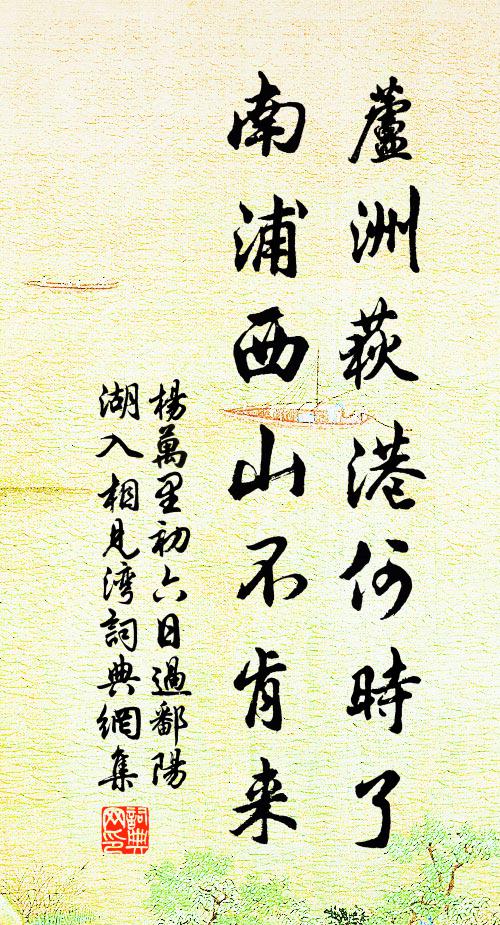 蘆洲荻港何時了
南浦西山不肯来
楊萬里初六日過鄱陽
湖入相見湾詞典網集
詞典
网印